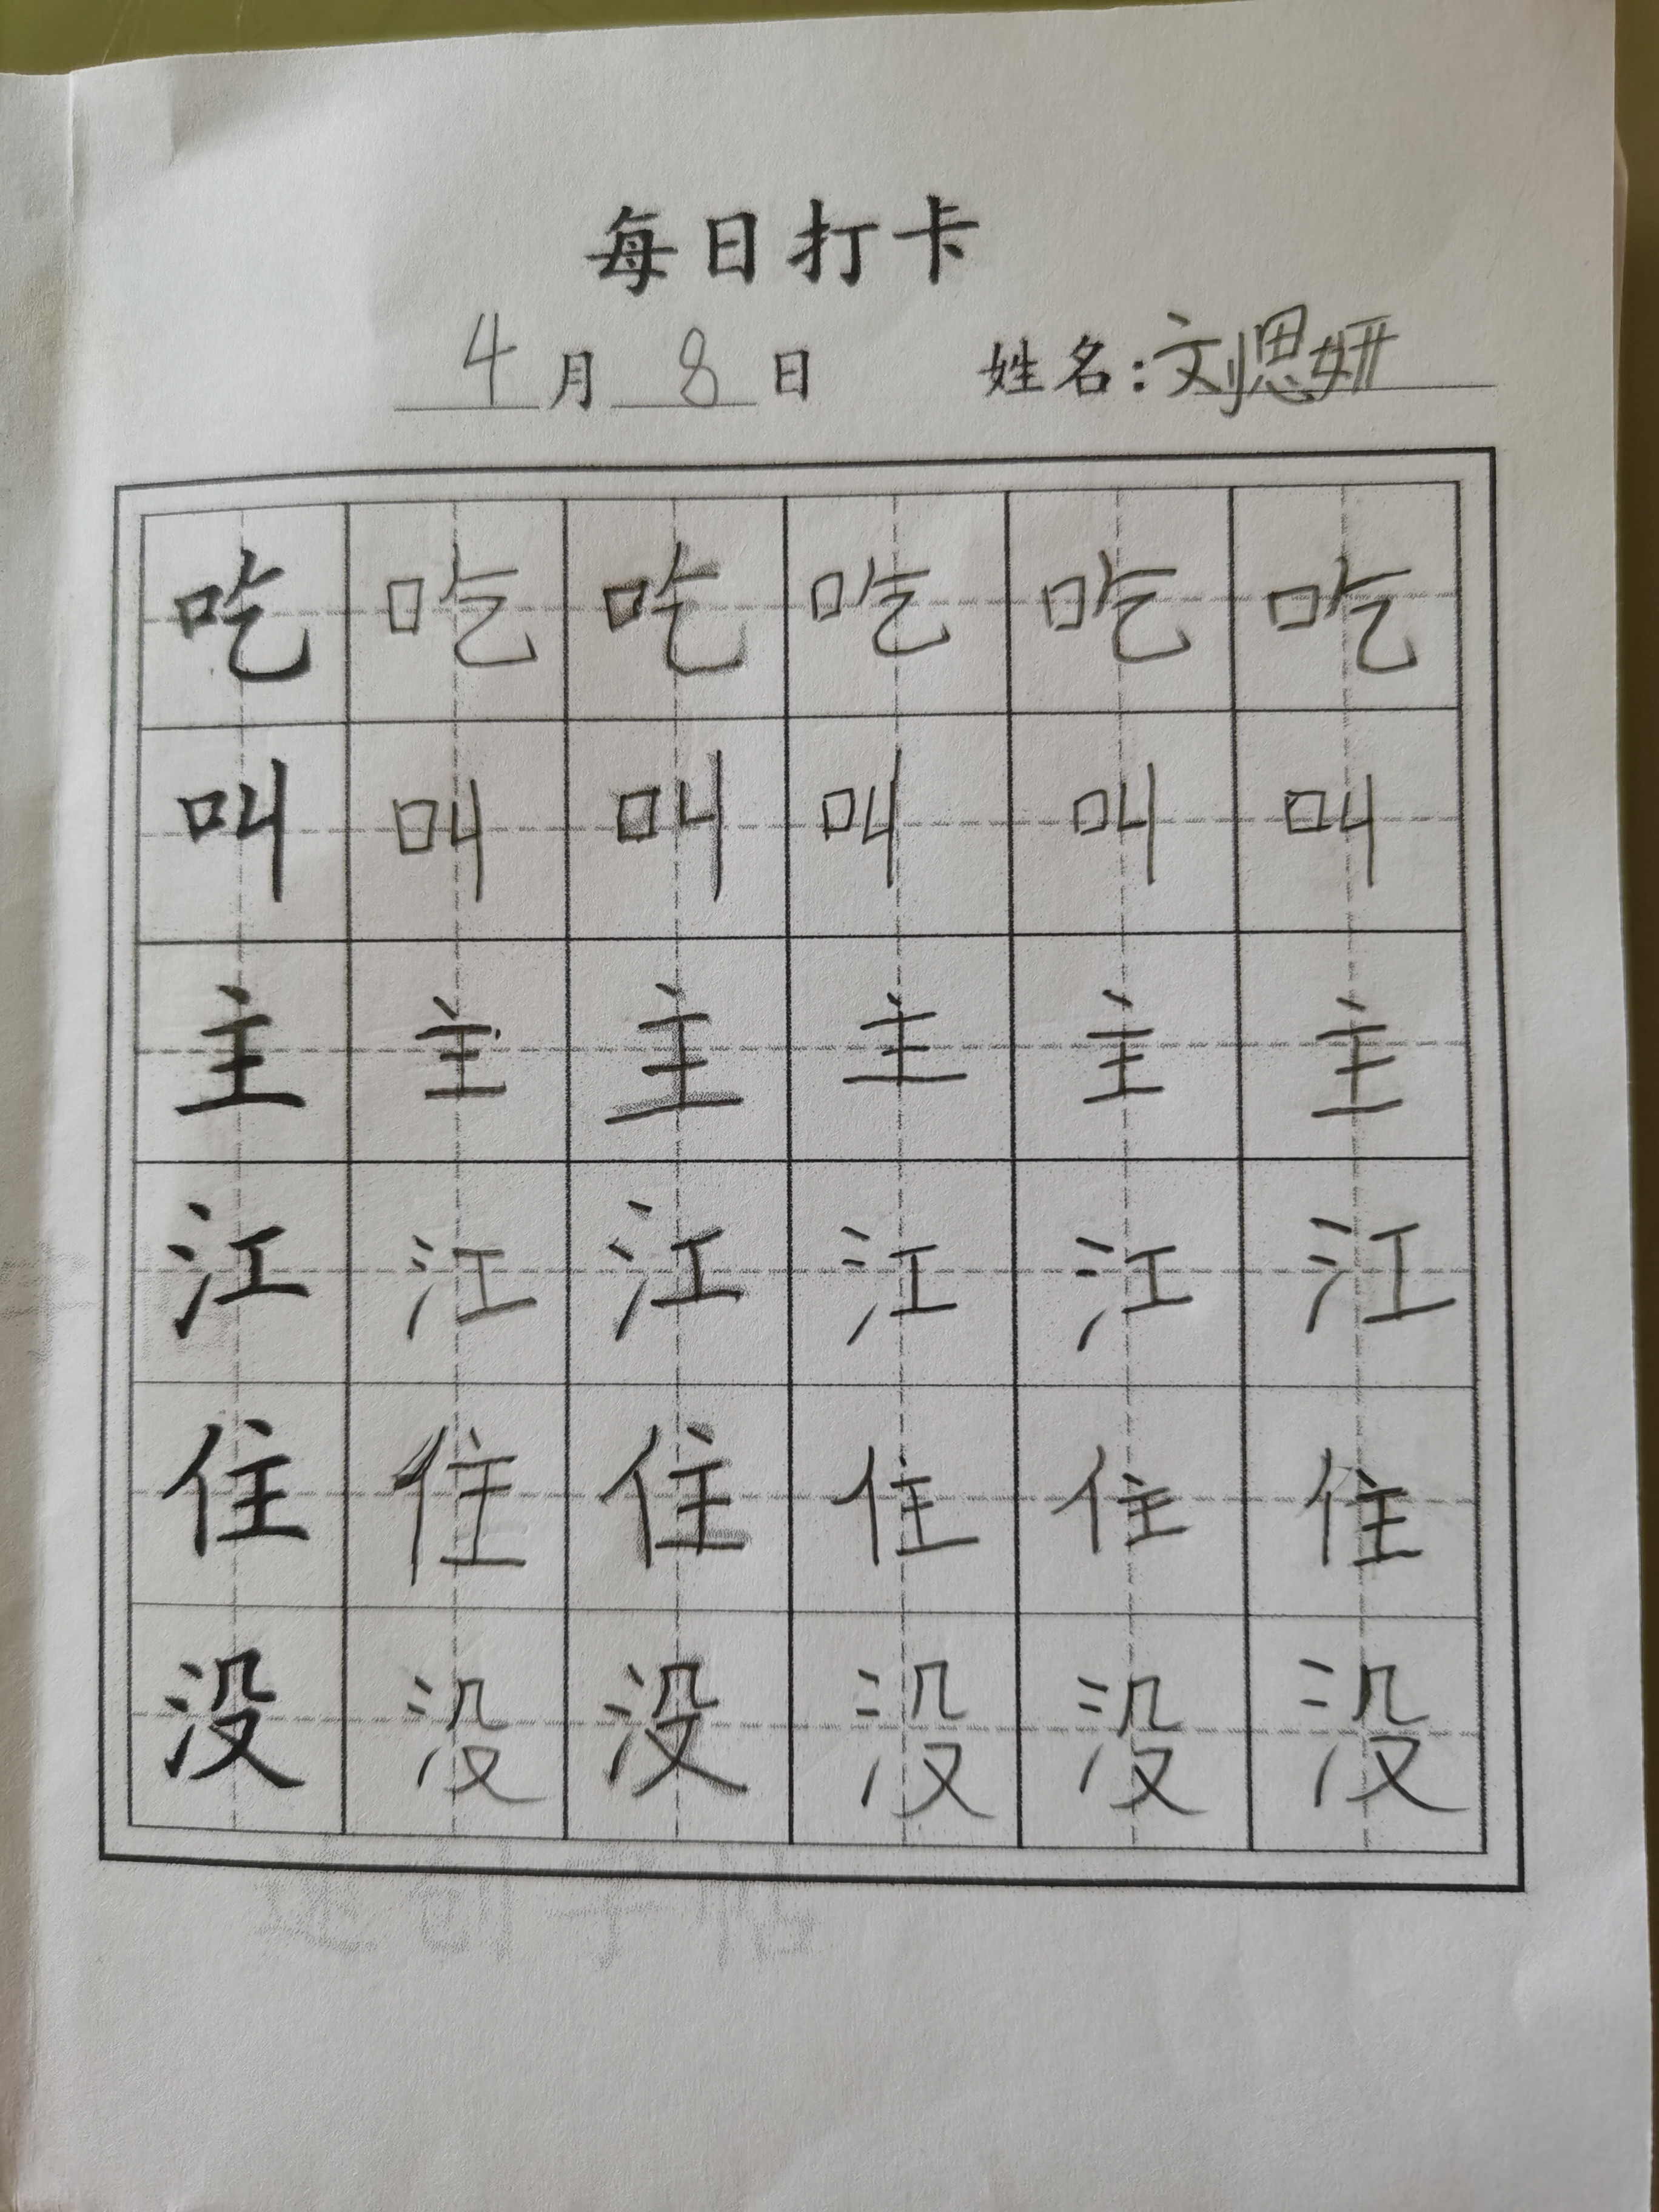 每日打卡
4月8日 姓名:刘恩妍
吃吃吃吃吃吃
叫叫叫叫叫叫
主主主主主主
江江江江江江
住住住住住住
没没没没没没